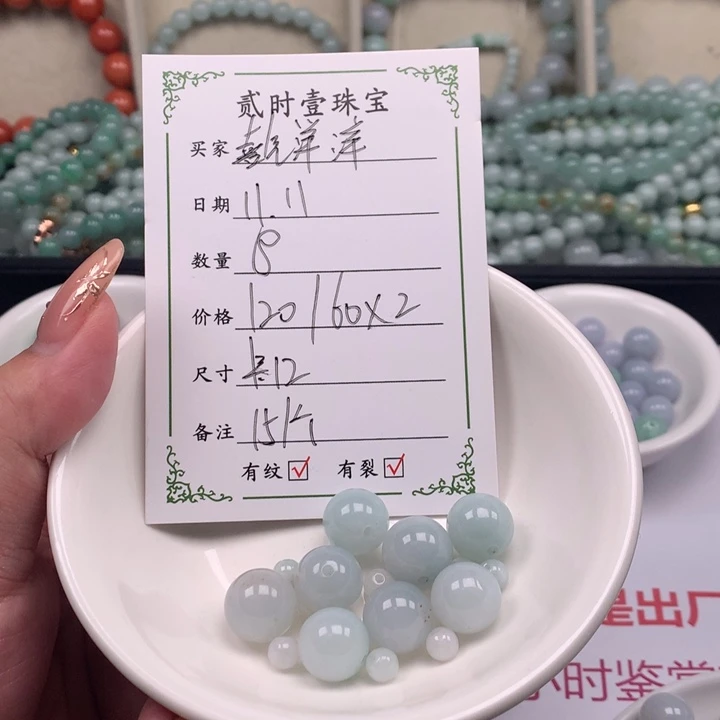 贰时壹珠宝
买家 彭洋洋
日期 11.11
数量 8
价格 120/60X2
尺寸 12
备注 15个
有纹 ☑ 有裂 ☑
是出厂
小时鉴赏